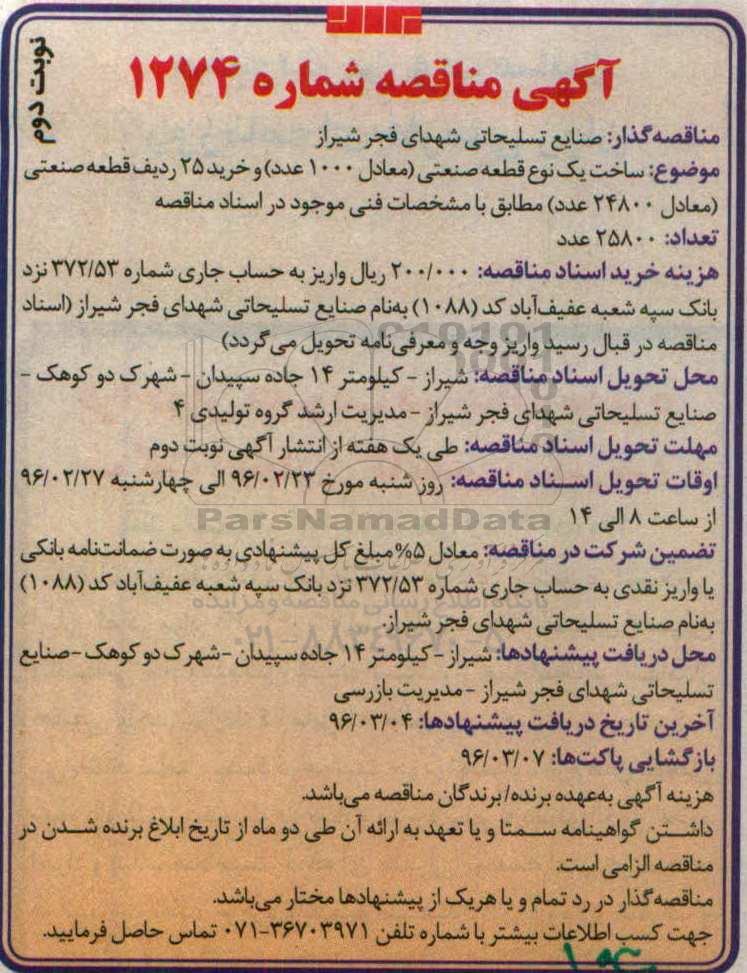 نوبت دوم
آگهی مناقصه شماره ۱۲۷۴
مناقصه‌گذار: صنایع تسلیحاتی شهدای فجر شیراز
موضوع: ساخت یک نوع قطعه صنعتی (معادل ۱۰۰۰ عدد) و خرید ۲۵ ردیف قطعه صنعتی
(معادل ۲۴۸۰۰ عدد) مطابق با مشخصات فنی موجود در اسناد مناقصه
تعداد: ۲۵۸۰۰ عدد
هزینه خرید اسناد مناقصه: ۲۰۰/۰۰۰ ریال واریز به حساب جاری شماره ۳۷۲/۵۳ نزد
بانک سپه شعبه عفیف‌آباد کد (۱۰۸۸) به‌نام صنایع تسلیحاتی شهدای فجر شیراز (اسناد
مناقصه در قبال رسید واریز وجه و معرفی‌نامه تحویل می‌گردد)
محل تحویل اسناد مناقصه: شیراز - کیلومتر ۱۴ جاده سپیدان - شهرک دو کوهک -
صنایع تسلیحاتی شهدای فجر شیراز - مدیریت ارشد گروه تولیدی ۴
مهلت تحویل اسناد مناقصه: طی یک هفته از انتشار آگهی نوبت دوم
اوقات تحویل اسناد مناقصه: روز شنبه مورخ ۹۶/۰۲/۲۳ الی چهارشنبه ۹۶/۰۲/۲۷
از ساعت ۸ الی ۱۴
ParsNamadData
تضمین شرکت در مناقصه: معادل ۵% مبلغ کل پیشنهادی به صورت ضمانت‌نامه بانکی
یا واریز نقدی به حساب جاری شماره ۳۷۲/۵۳ نزد بانک سپه شعبه عفیف‌آباد کد (۱۰۸۸)
به‌نام صنایع تسلیحاتی شهدای فجر شیراز.
محل دریافت پیشنهادها: شیراز - کیلومتر ۱۴ جاده سپیدان - شهرک دو کوهک - صنایع
تسلیحاتی شهدای فجر شیراز - مدیریت بازرسی
آخرین تاریخ دریافت پیشنهادها: ۹۶/۰۳/۰۴
بازگشایی پاکت‌ها: ۹۶/۰۳/۰۷
هزینه آگهی به‌عهده برنده/ برندگان مناقصه می‌باشد.
داشتن گواهینامه سمتا و یا تعهد به ارائه آن طی دو ماه از تاریخ ابلاغ برنده شدن در
مناقصه الزامی است.
مناقصه‌گذار در رد تمام و یا هریک از پیشنهادها مختار می‌باشد.
جهت کسب اطلاعات بیشتر با شماره تلفن ۳۶۷۰۳۹۷۱-۰۷۱ تماس حاصل فرمایید.